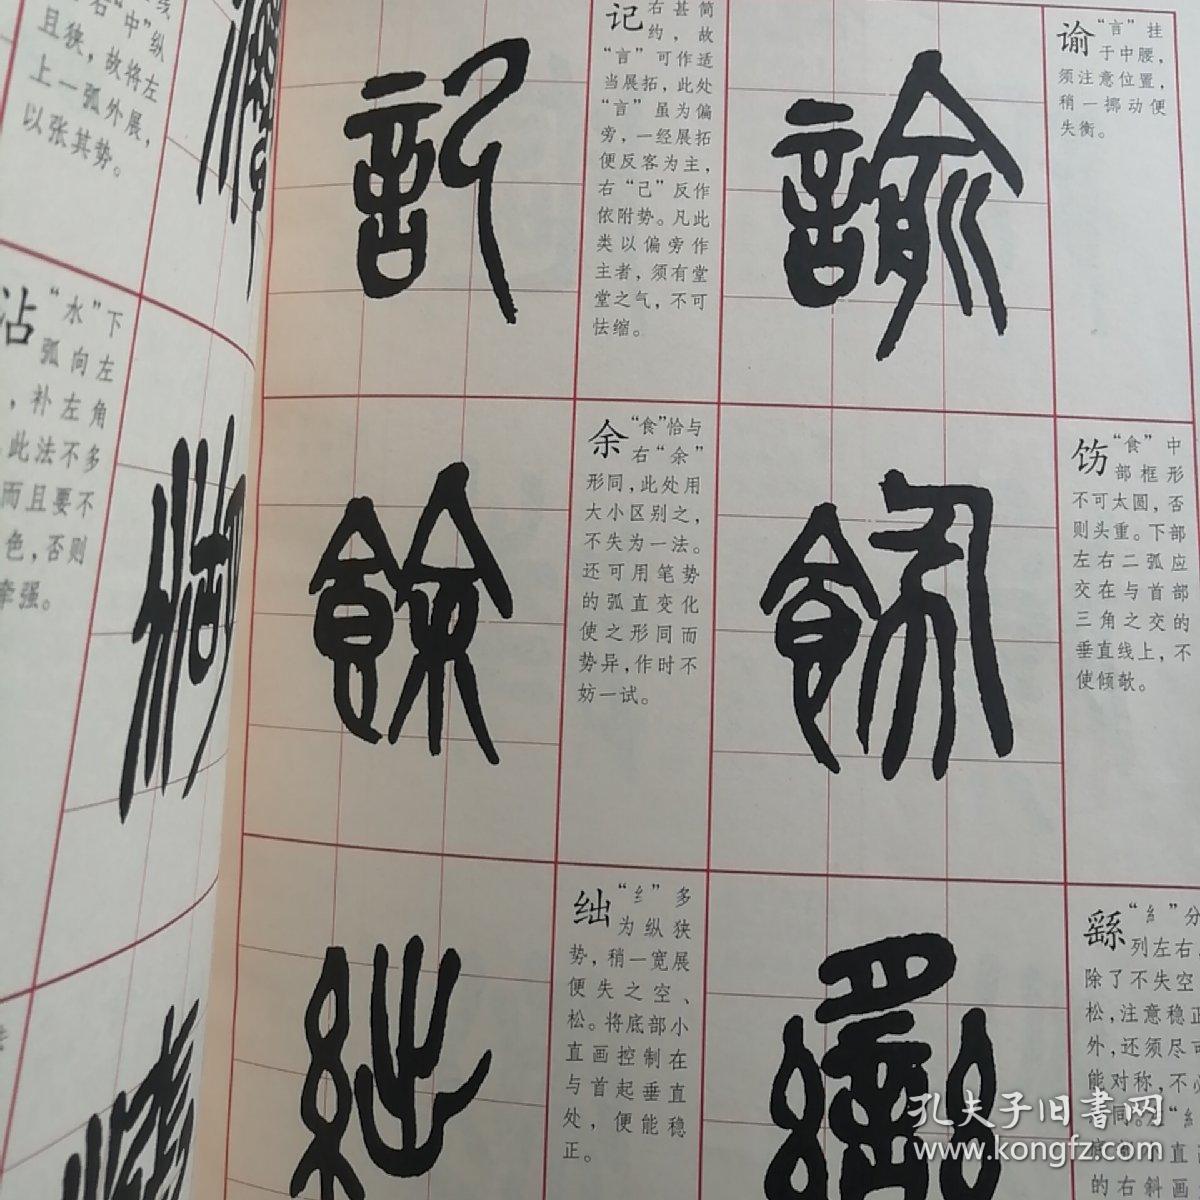 谕 “言”挂
于中腰，
须注意位置，
稍一挪动便
失衡。
记 右甚简
约，故
“言”可作适
当展拓，此处
“言”虽为偏
旁，一经展拓
便反客为主，
右“己”反作
依附势。凡此
类以偏旁作
主者，须有堂
堂之气，不可
怯缩。
右“中”纵
且狭，故将左
上一弧外展，
以张其势。
饬 “食”中
部框形
不可太圆，否
则头重。下部
左右二弧应
交在与首部
三角之交的
垂直线上，不
使倾欹。
余 “食”恰与
右“余”
形同，此处用
大小区别之，
不失为一法。
还可用笔势
的弧直变化
使之形同而
势异，作时不
妨一试。
沾 “水”下
弧向左
，补左角
此法不多
而且要不
色，否则
牵强。
繇 “糹”分
列左右，
除了不失空
松，注意稳正
外，还须尽可
能对称，不
同。
的右斜画
绌 “纟”多
为纵狭
势，稍一宽展
便失之空、
松。将底部小
直画控制在
与首起垂直
处，便能稳
正。
孔夫子旧书网
www.kongfz.com